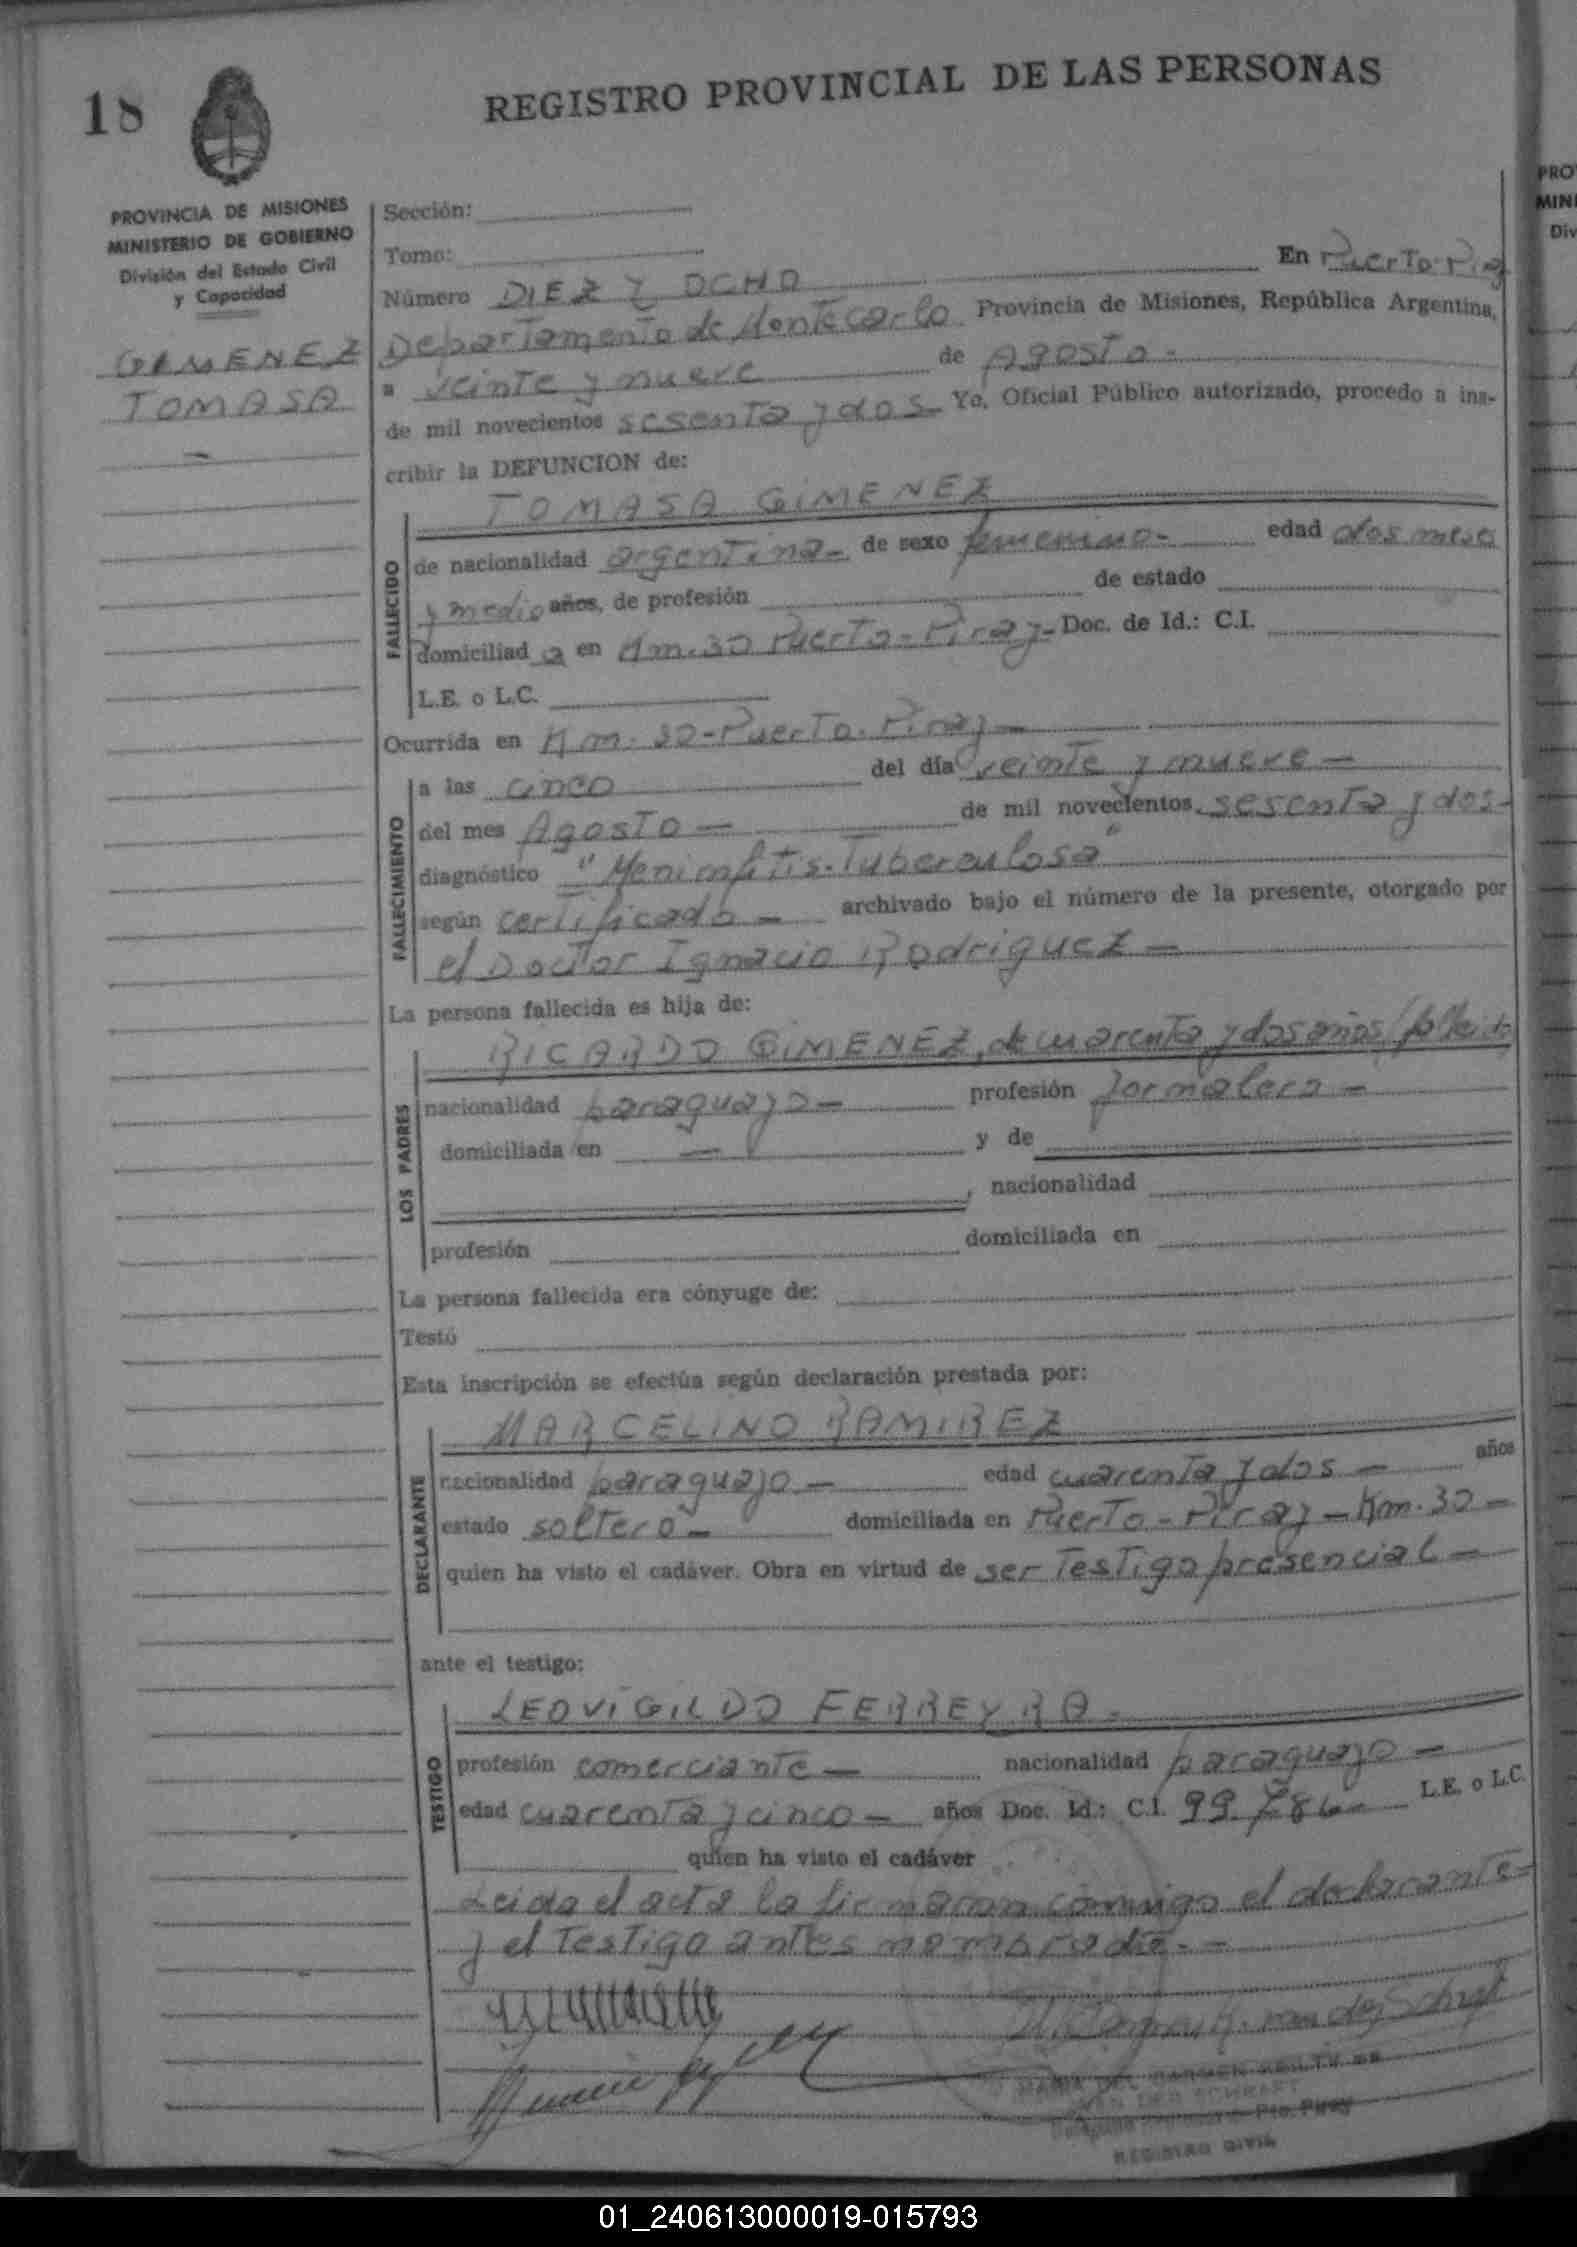 18
REGISTRO PROVINCIAL DE LAS PERSONAS
PROVINCIA DE MISIONES
MINISTERIO DE GOBIERNO
División del Estado Civil
y Capacidad
GIMENEZ
TOMASA
Sección:
Tomo:
Número DIEZ Y OCHO En Puerto-Piray
Departamento de Montecarlo Provincia de Misiones, República Argentina,
a veinte y nueve de Agosto-
de mil novecientos sesenta y dos- Yo, Oficial Público autorizado, procedo a ins-
cribir la DEFUNCION de:
TOMASA GIMENEZ
FALLECIDO
de nacionalidad argentina- de sexo femenino- edad dos meses
y medio años, de profesión de estado
domiciliad a en Km.30 Puerto-Piray- Doc. de Id.: C.I.
L.E. o L.C.
Ocurrida en Km. 30-Puerto-Piray-
FALLECIMIENTO
a las cinco del día veinte y nueve-
del mes Agosto- de mil novecientos sesenta y dos-
diagnóstico "Meningitis-Tuberculosa"
según certificado- archivado bajo el número de la presente, otorgado por
el Doctor Ignacio Rodriguez-
La persona fallecida es hija de:
LOS PADRES
RICARDO GIMENEZ, de cuarenta y dos años (fallecido)
nacionalidad paraguayo- profesión jornalero-
domiciliada en - y de
, nacionalidad
profesión domiciliada en
La persona fallecida era cónyuge de:
Testó
Esta inscripción se efectúa según declaración prestada por:
DECLARANTE
MARCELINO RAMIREZ
nacionalidad paraguayo- edad cuarenta y dos- años
estado soltero- domiciliada en Puerto-Piray-Km.30-
quien ha visto el cadáver. Obra en virtud de ser testigo presencial-
ante el testigo:
TESTIGO
LEOVIGILDO FERREYRA-
profesión comerciante- nacionalidad paraguayo-
edad cuarenta y cinco- años Doc. Id.: C.I. 99.786- L.E. o L.C.
quien ha visto el cadáver
Leida el acta la firmaron conmigo el declarante-
y el testigo antes nombrado--
MARIA DEL CARMEN
VAN DER SCHRAFT
Pto. Piray
REGISTRO CIVIL
PRO
MINI
Div
01_240613000019-015793